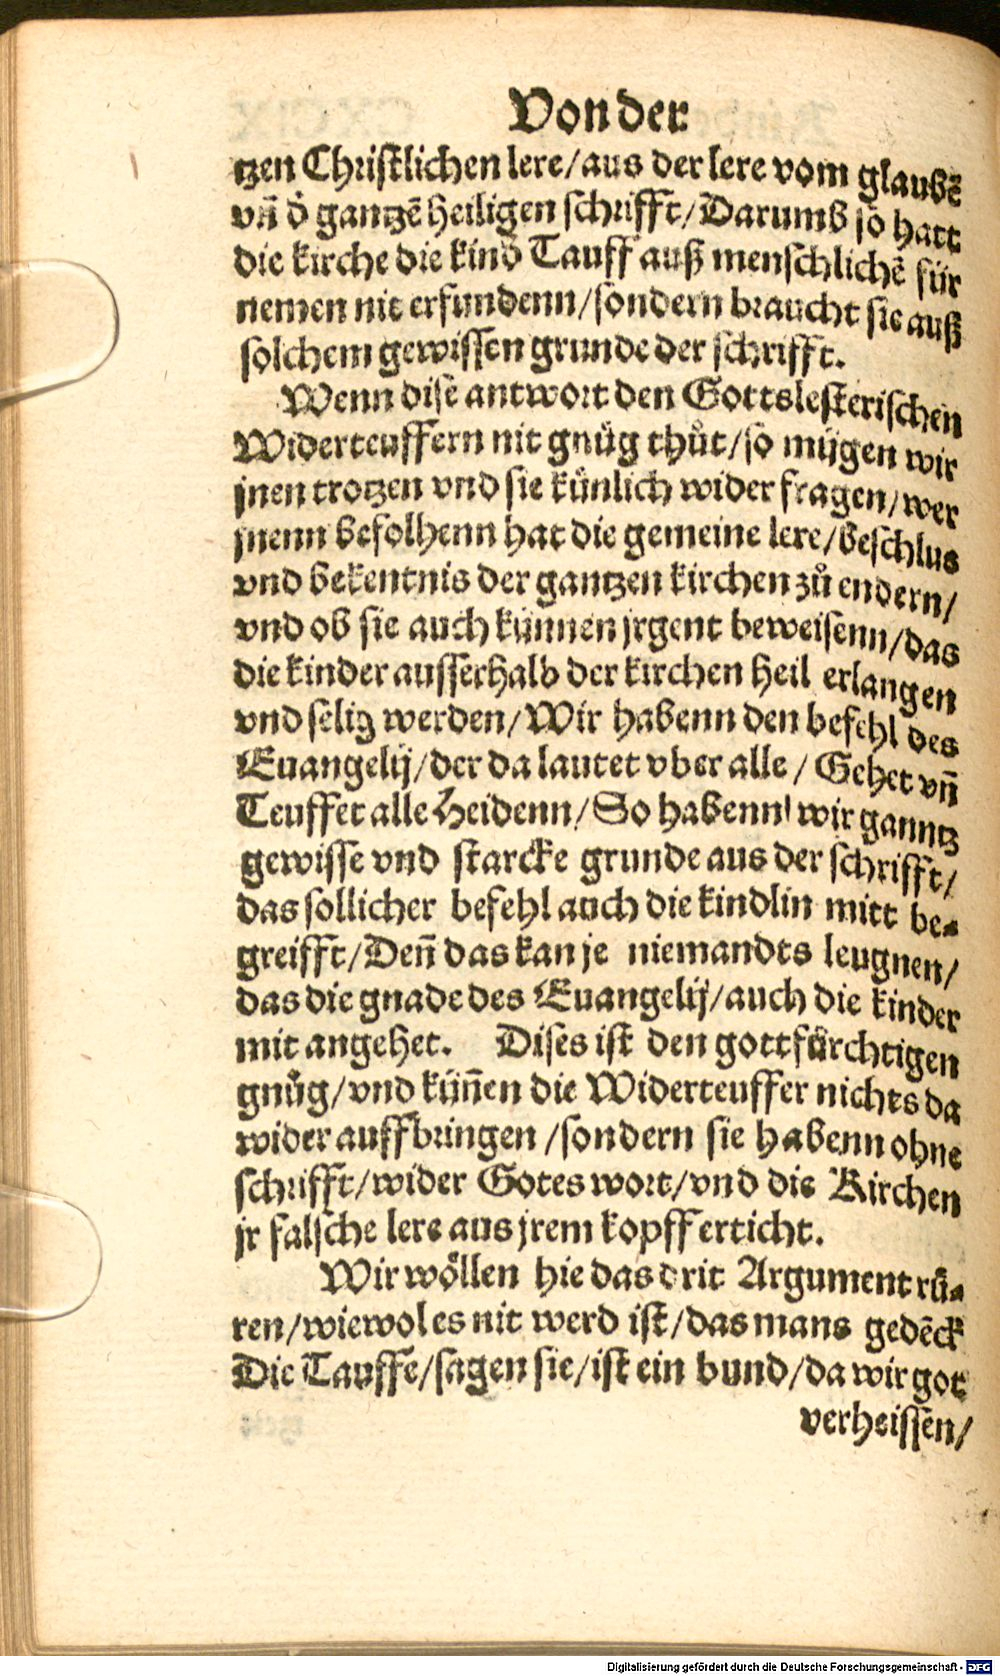 Von der
tzen Christlichen lere/aus der lere vom glaubē
vn̄ d̕ gantzē heiligen schrifft/Darumb so hatt
die kirche die kind Tauff auß menschlichē für
nemen nit erfundenn/sondern braucht sie auß
solchem gewissen grunde der schrifft.
Wenn dise antwort den Gottslesterischen
Widerteuffern nit gnůg thůt/so mügen wir
jnen trotzen vnd sie künlich wider fragen/wer
jnenn befolhenn hat die gemeine lere/beschlus
vnd bekentnis der gantzen kirchen zů endern/
vnd ob sie auch künnen jrgent beweisenn/das
die kinder ausserhalb der kirchen heil erlangen
vnd selig werden/Wir habenn den befehl des
Euangelij/der da lautet vber alle/Gehet vn̄
Teuffet alle Heidenn/So habenn wir ganntz
gewisse vnd starcke grunde aus der schrifft/
das sollicher befehl auch die kindlin mitt be-
greifft/Den̄ das kan je niemandts leugnen/
das die gnade des Euangelij/auch die kinder
mit angehet. Dises ist den gottfürchtigen
gnůg/vnd kün̄en die Widerteuffer nichts da
wider auffbringen/sondern sie habenn ohne
schrifft/wider Gotes wort/vnd die Kirchen
jr falsche lere aus jrem kopff erticht.
Wir wöllen hie das drit Argument rü-
ren/wiewol es nit werd ist/das mans gedēck
Die Tauffe/sagen sie/ist ein bund/da wir got
verheissen/
Digitalisierung gefördert durch die Deutsche Forschungsgemeinschaft - DFG